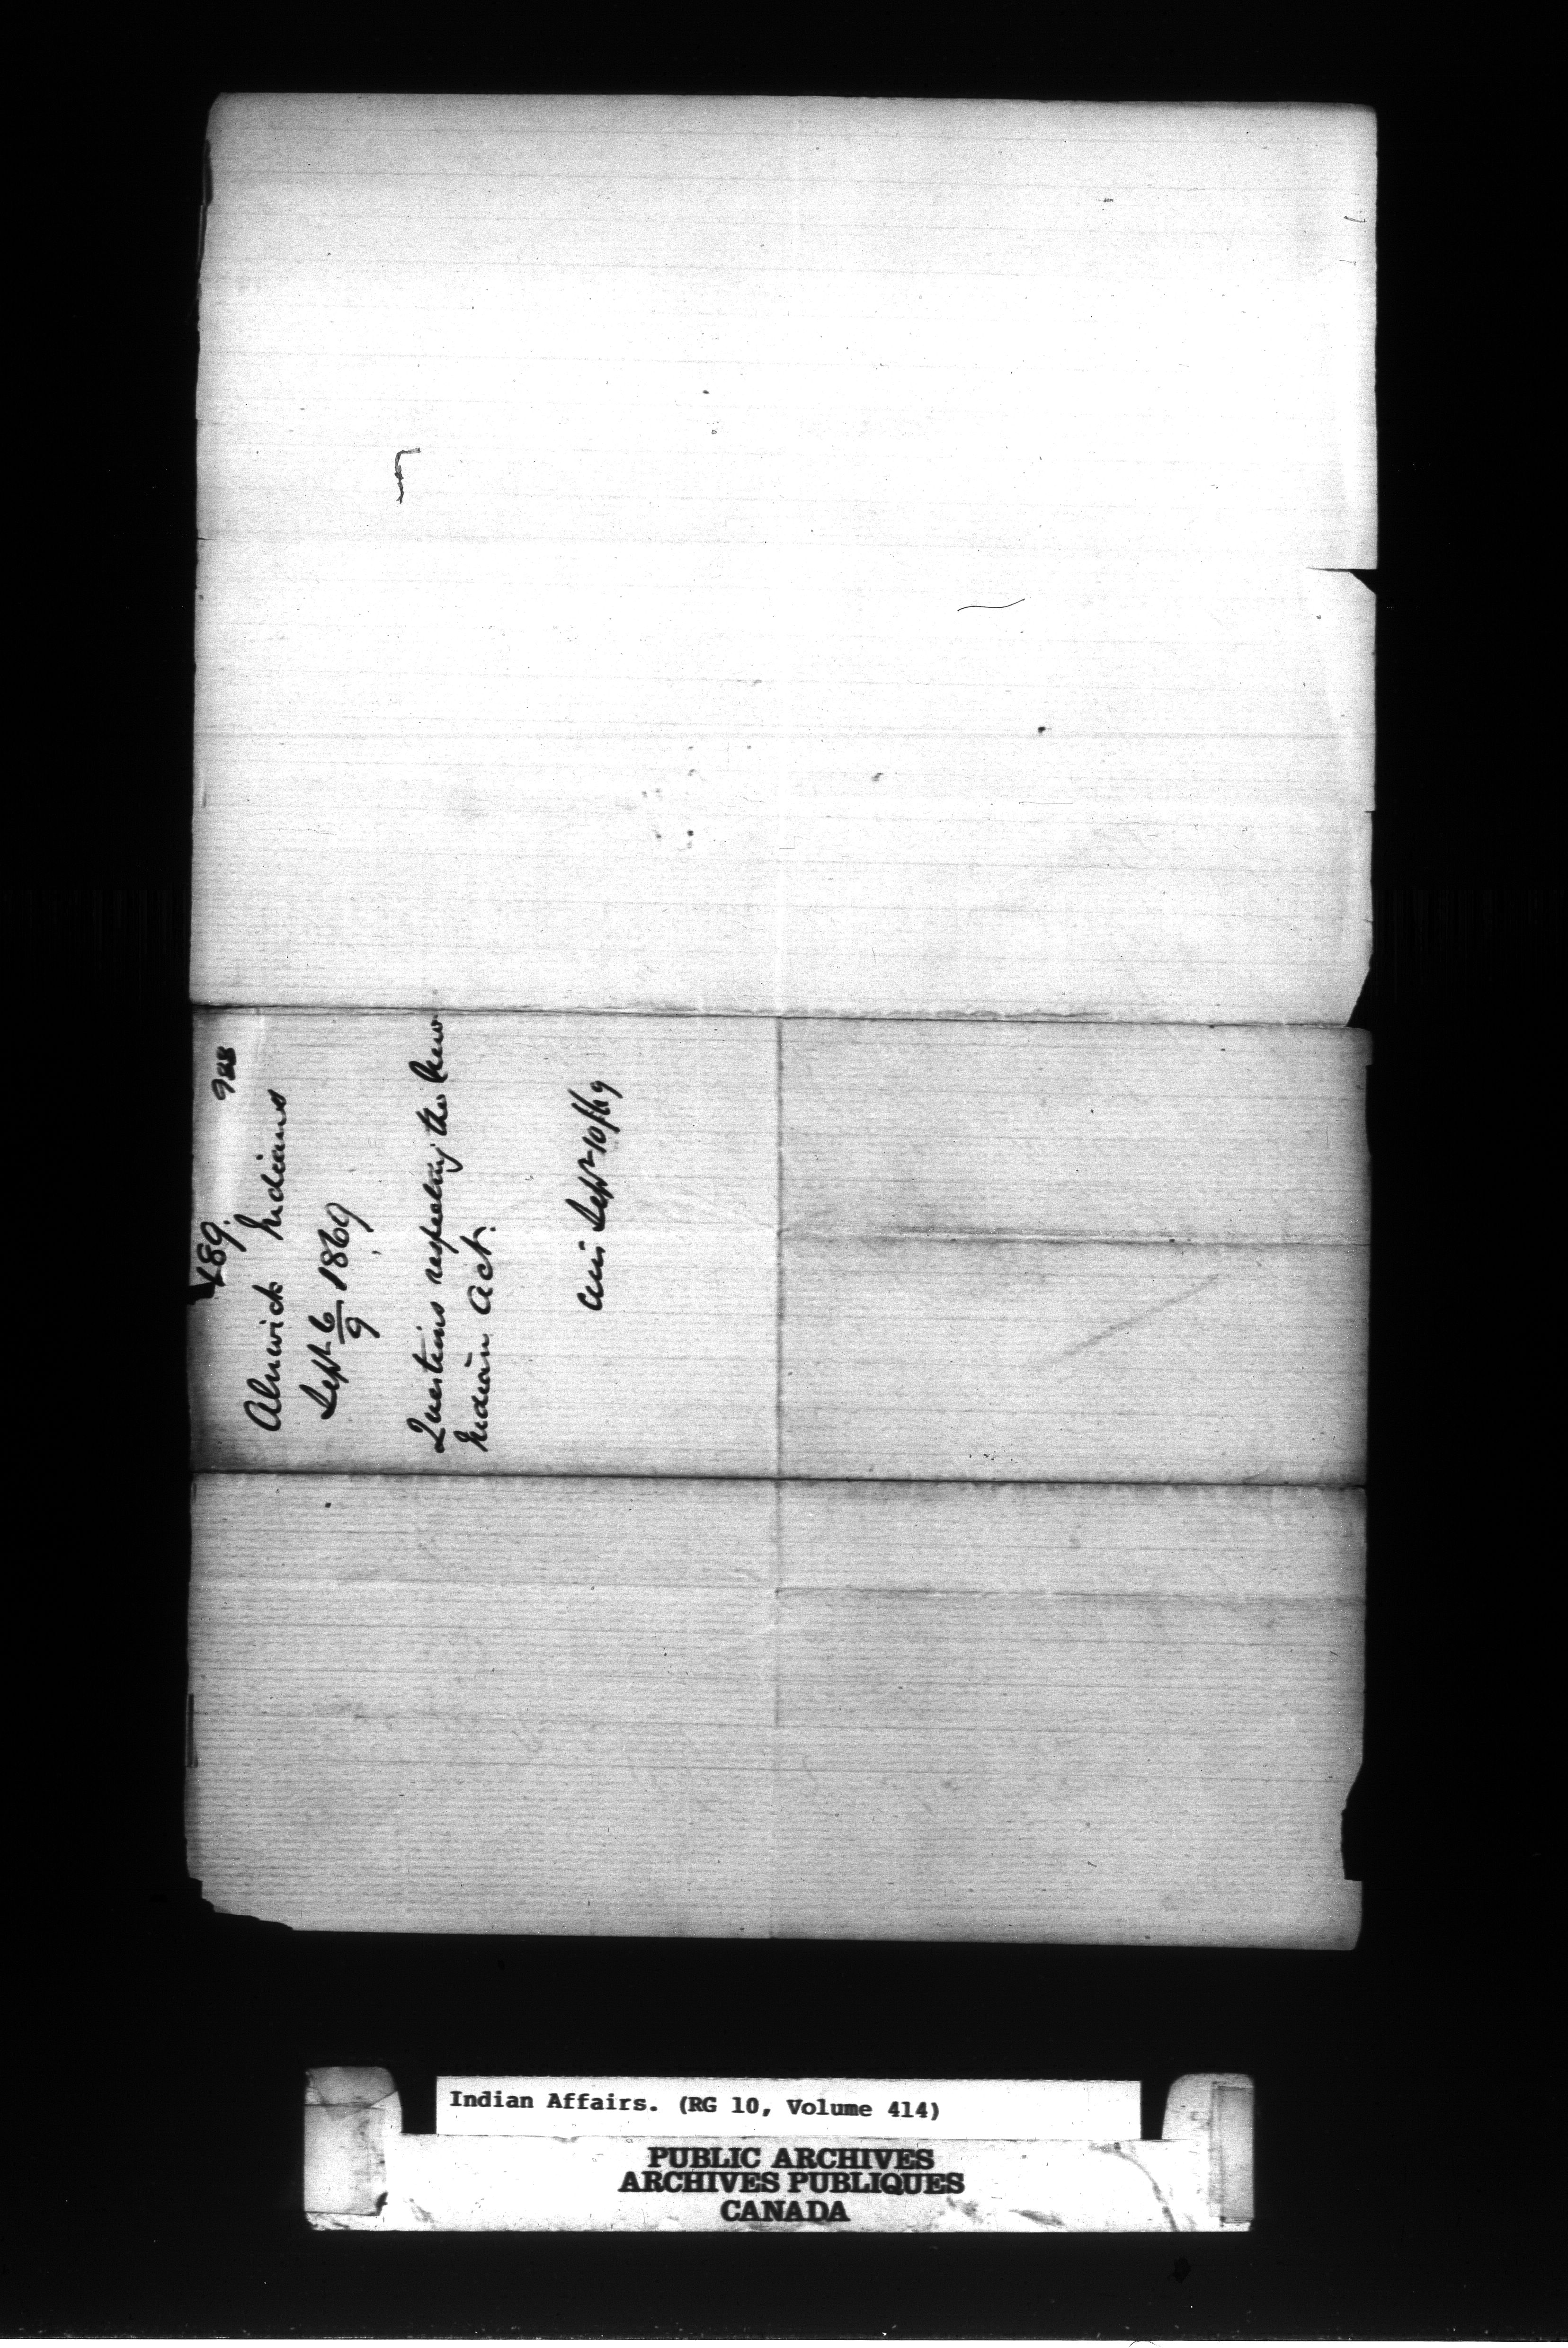 189.
988
Alnwick Indians
Sept 6/9 1869
Questions respecting the new
Indian Act.
Ans Sept 10/69
Indian Affairs. (RG 10, Volume 414)
PUBLIC ARCHIVES
ARCHIVES PUBLIQUES
CANADA